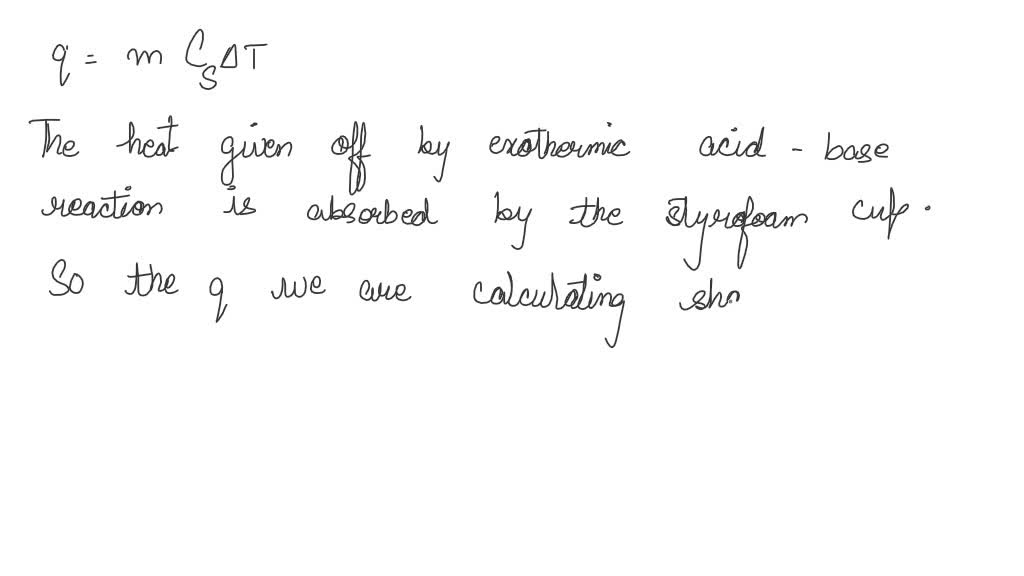 q = m Cs ΔT
The heat given off by exothermic acid - base
reaction is absorbed by the styrofoam cup.
So the q we are calculating sho